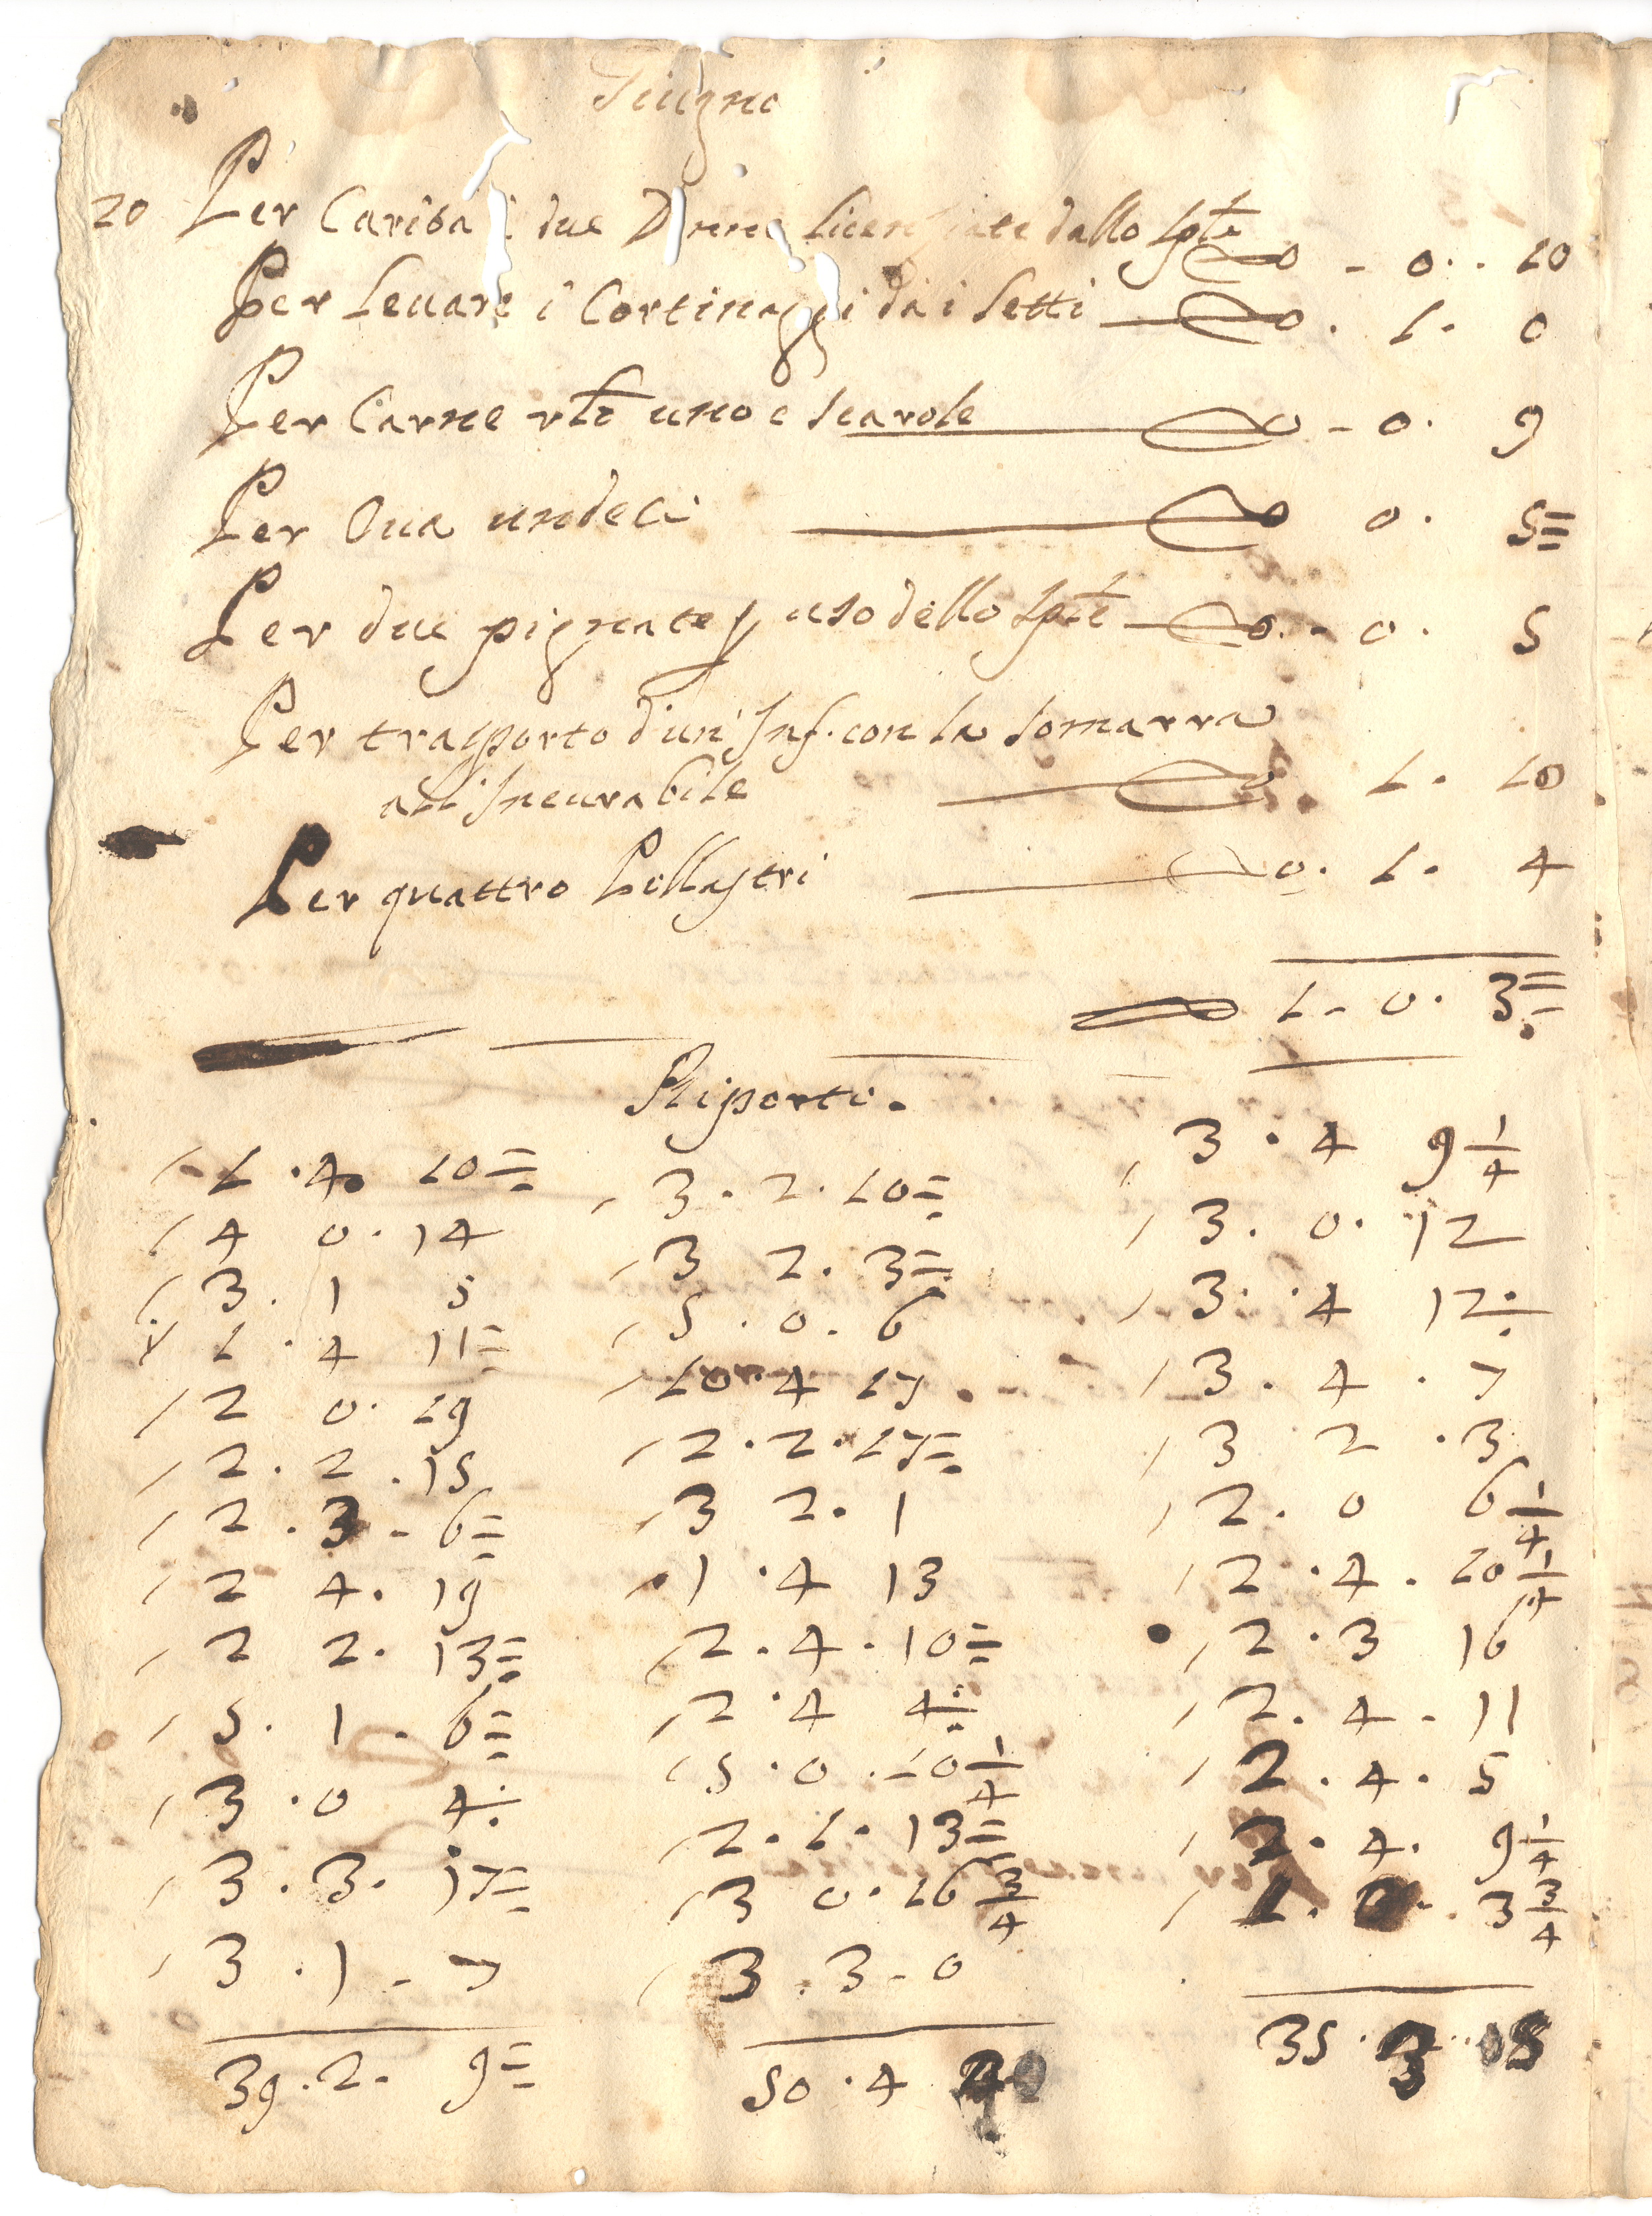 Giugno
20 Per Carità à due Donne licenziate dallo Sple - 0 . . 10
Per levare i Cortinaggi da i letti . 1 . 0
Per Carne rle uno e scarole - 0 . 9
Per Oua undeci 0 . 5=
Per due pignate p uso dello Sple - 0 . 5
Per trasporto d'un' Inf. con la Somarra
all'Incurabile . 1 . 10
Per quattro Pollastri 0 . 1 . 4
1 - 0 . 3
Riporti .
/ 1 . 4 10= / 3 . 2 . 10= / 3 . 4 9 1/4
/ 4 0 . 14 / 3 2 . 3= / 3 . 0 . 12
/ 3 . 1 5 / 5 . 0 . 6 / 3 . 4 12
/ 1 . 4 11= / 10 . 4 17 / 3 . 4 . 7
/ 2 0 . 19 / 2 . 2 . 17= / 3 2 . 3
/ 2 . 2 . 15 / 3 2 . 1 / 2 . 0 6 1/4
/ 2 . 3 - 6= / 1 . 4 13 / 2 . 4 . 10 1/4
/ 2 4 . 19 / 2 . 4 . 10= / 2 . 3 16
/ 2 2 . 13= / 2 . 4 4 / 2 . 4 - 11
/ 5 . 1 . 6= / 5 . 0 . 10 1/4 / 2 . 4 . 5
/ 3 . 0 4 / 2 . 1 . 13= / 2 . 4 . 9 1/4
/ 3 . 3 . 17= / 3 0 . 16 3/4 / 1 . 0 . 3 3/4
/ 3 . 1 - 7 / 3 . 3 - 0
39 . 2 . 9= 50 . 4 35 . 3